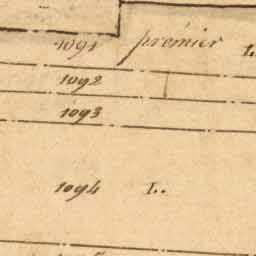 1091 prémier L.
1092
1093
1094 L.